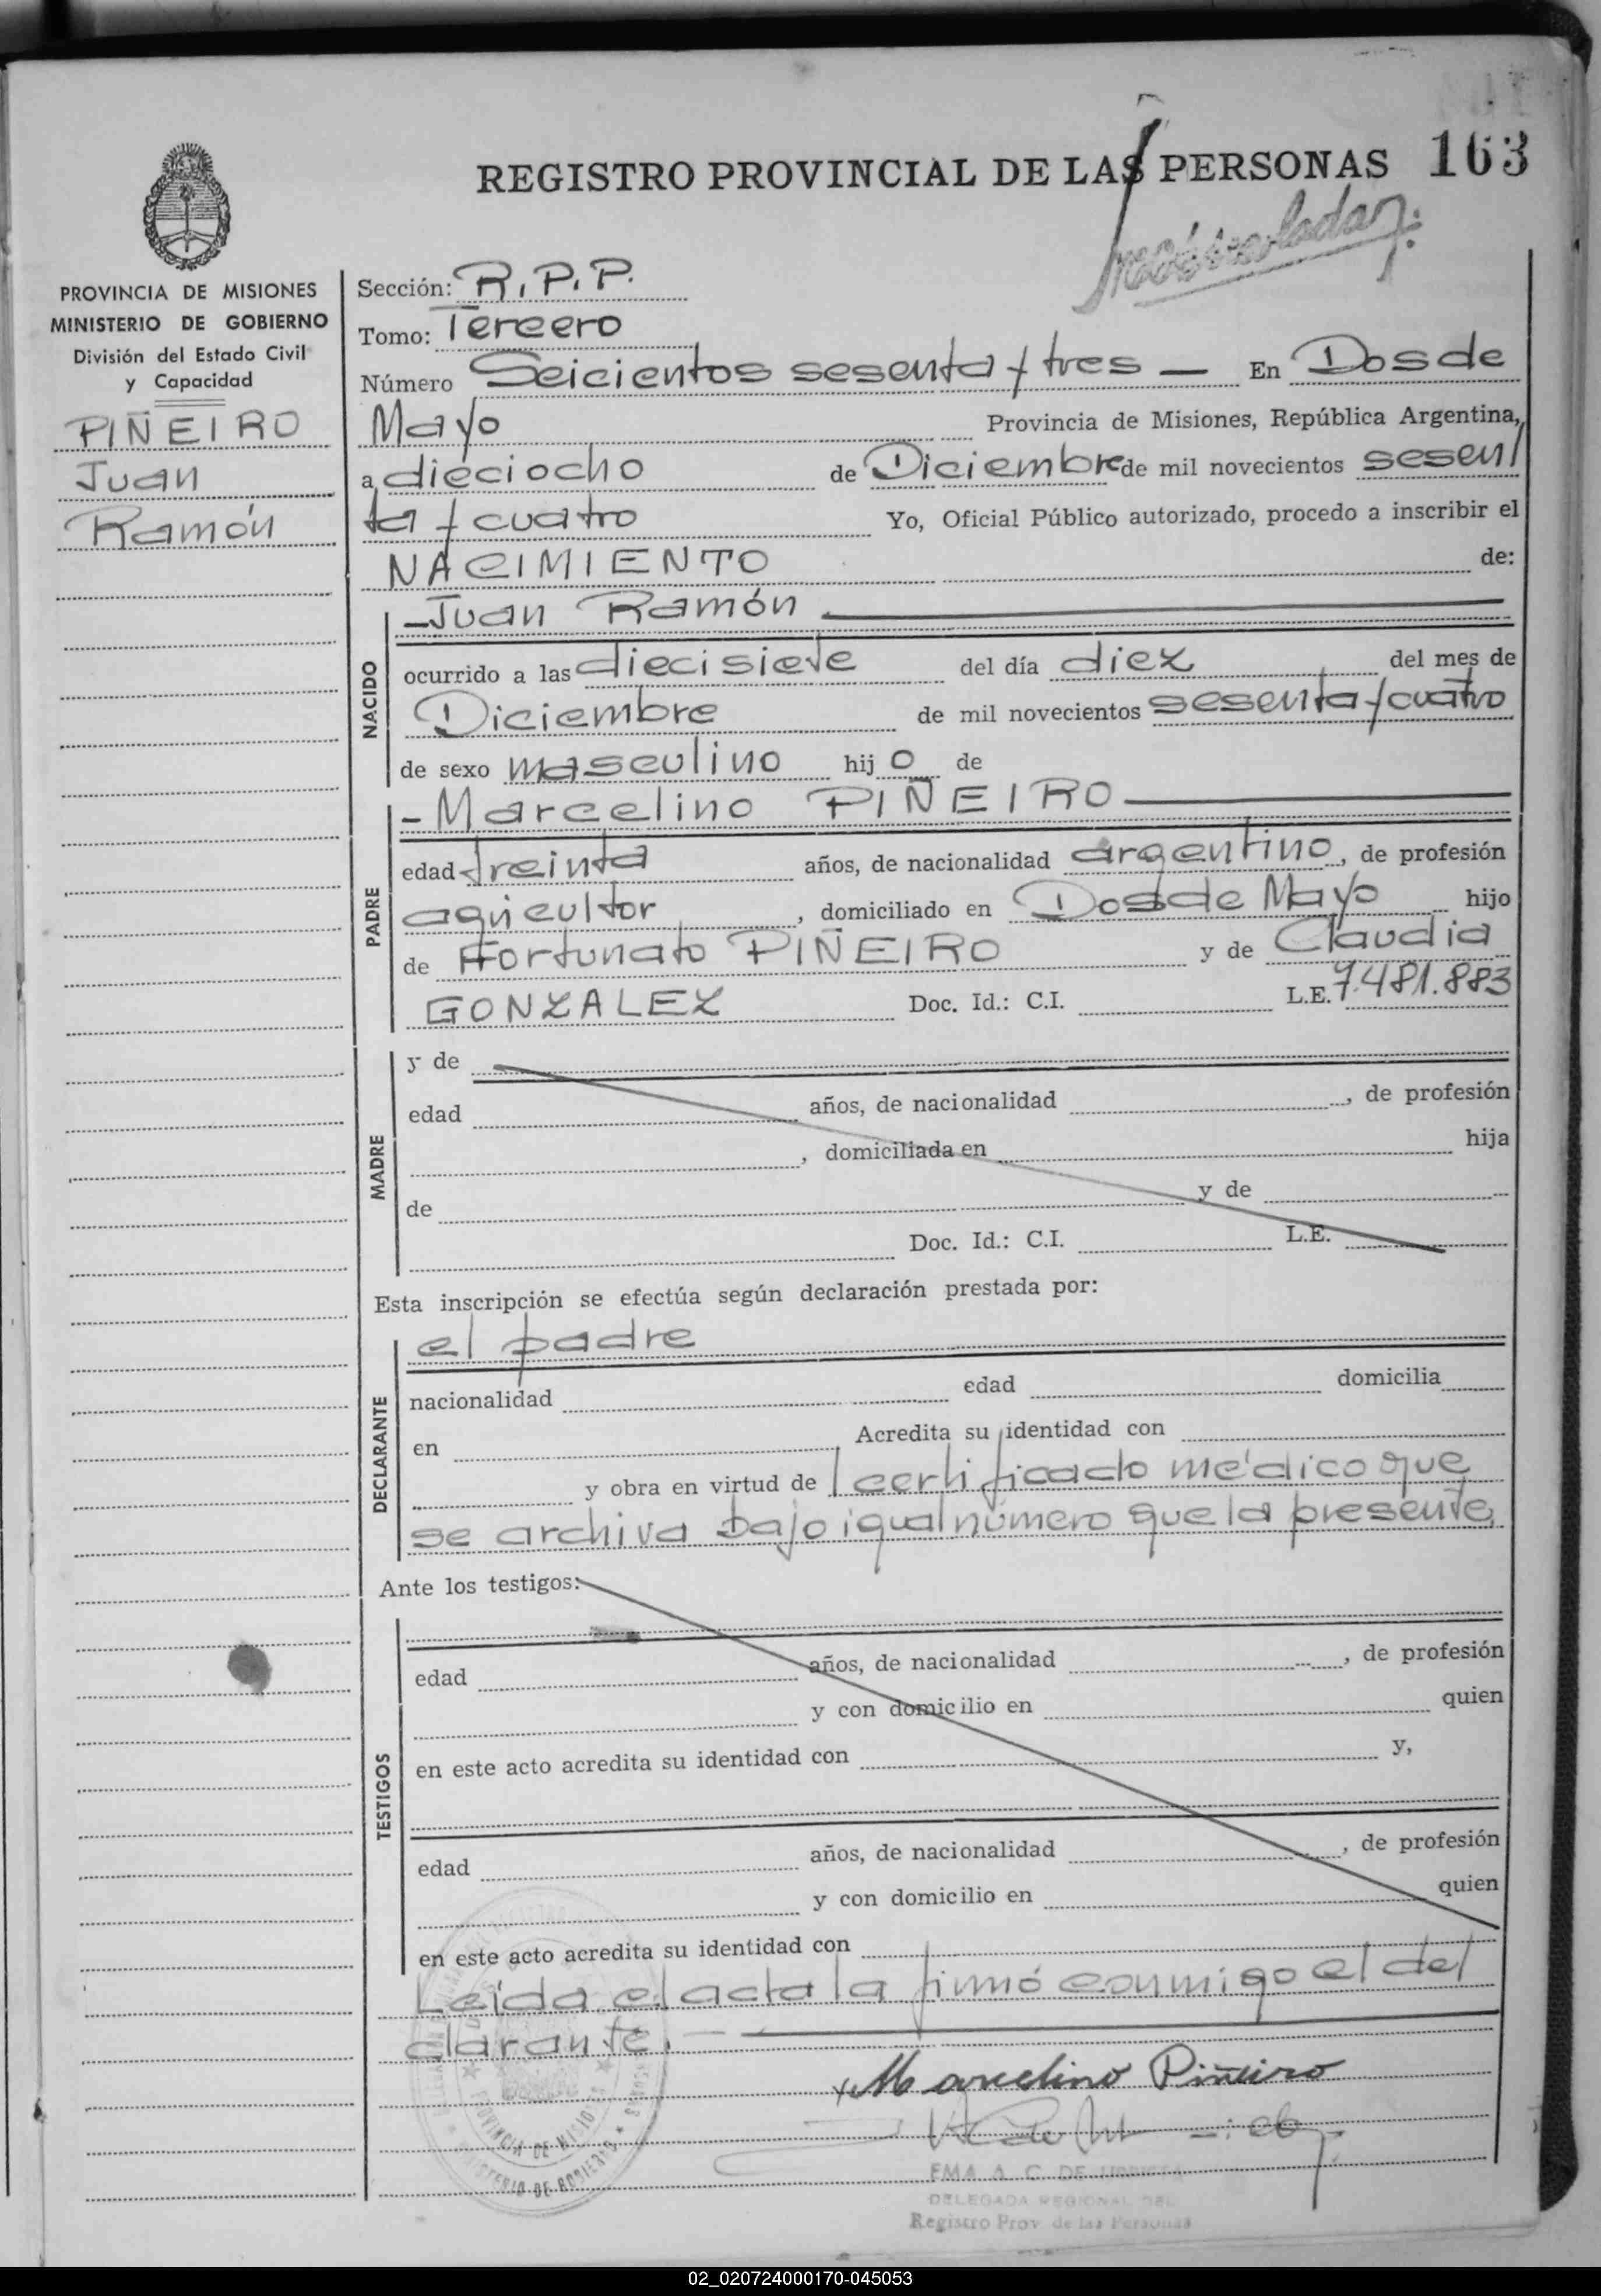 REGISTRO PROVINCIAL DE LAS PERSONAS 163
PROVINCIA DE MISIONES
MINISTERIO DE GOBIERNO
División del Estado Civil
y Capacidad
PIÑEIRO
Juan
Ramón
Sección: R.P.P.
Tomo: Tercero
Número Seicientos sesenta y tres — En Dos de
Mayo Provincia de Misiones, República Argentina,
a dieciocho de Diciembre de mil novecientos sesen/
ta y cuatro Yo, Oficial Público autorizado, procedo a inscribir el
NACIMIENTO de:
NACIDO
—Juan Ramón
ocurrido a las diecisiete del día diez del mes de
Diciembre de mil novecientos sesenta y cuatro
de sexo masculino hij o de
PADRE
-Marcelino PIÑEIRO
edad treinta años, de nacionalidad argentino, de profesión
agricultor, domiciliado en Dos de Mayo hijo
de Fortunato PIÑEIRO y de Claudia
GONZALEZ Doc. Id.: C.I. L.E. 7.481.883
MADRE
y de
edad años, de nacionalidad , de profesión
, domiciliada en hija
de y de
Doc. Id.: C.I. L.E.
Esta inscripción se efectúa según declaración prestada por:
DECLARANTE
el padre
nacionalidad edad domicilia
en Acredita su identidad con
y obra en virtud de certificado médico que
se archiva bajo igual número que la presente,
Ante los testigos:
TESTIGOS
edad años, de nacionalidad , de profesión
y con domicilio en quien
en este acto acredita su identidad con y,
edad años, de nacionalidad , de profesión
y con domicilio en quien
en este acto acredita su identidad con
Leída el acta la firmó conmigo el de/
clarante.
x Marcelino Piñeiro
PROVINCIA DE MISIONES
MINISTERIO DE GOBIERNO
EMA A. C. DE
DELEGADA REGIONAL DEL
Registro Prov. de las Personas
02_020724000170-045053